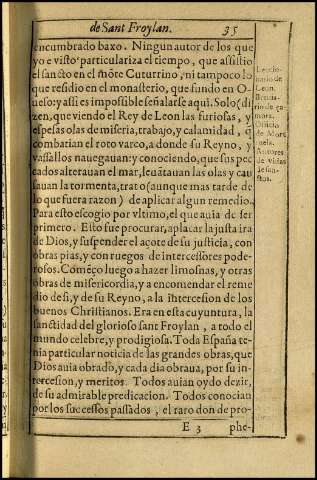 de Sant Froylan. 35
encumbrado baxo. Ningun autor de los que
yo e visto particulariza el tiempo, que assistio
el sancto en el mõte Cuturrino, ni tampoco lo
que residio en el monasterio, que fundo en O-
ueso: y assi es impossible señalarse aqui. Solo di
zen, que viendo el Rey de Leon las furiosas, y
espesas olas de miseria, trabajo, y calamidad, q̃
combatian el roto varco, a donde su Reyno, y
vassallos nauegauan: y conociendo, que sus pec
cados alterauan el mar, leuãtauan las olas y cau
sauan la tormenta, trato (aunque mas tarde de
lo que fuera razon) de aplicar algun remedio.
Para esto escogio por vltimo, el que auia de ser
primero. Esto fue procurar, aplacar la justa ira
de Dios, y suspender el açote de su justicia, con
obras pias, y con ruegos de intercessores pode-
rosos. Començo luego a hazer limosnas, y otras
obras de misericordia, y a encomendar el reme
dio de si, y de su Reyno, a la intercesion de los
buenos Christianos. Era en esta cuyuntura, la
sanctidad del glorioso sant Froylan, a todo el
mundo celebre, y prodigiosa. Toda España te-
nia particular noticia de las grandes obras, que
Dios auia obrado, y cada dia obraua, por su in-
tercesion, y meritos. Todos auian oydo dezir,
de su admirable predicacion. Todos conocian
por los successos passados, el raro don de pro-
E 3 phe-
Leccio-
nario de
Leon.
Breuia-
rio de ça-
mora.
Officio
de Mors
uela.
Autores
de vidas
de san-
ctos.